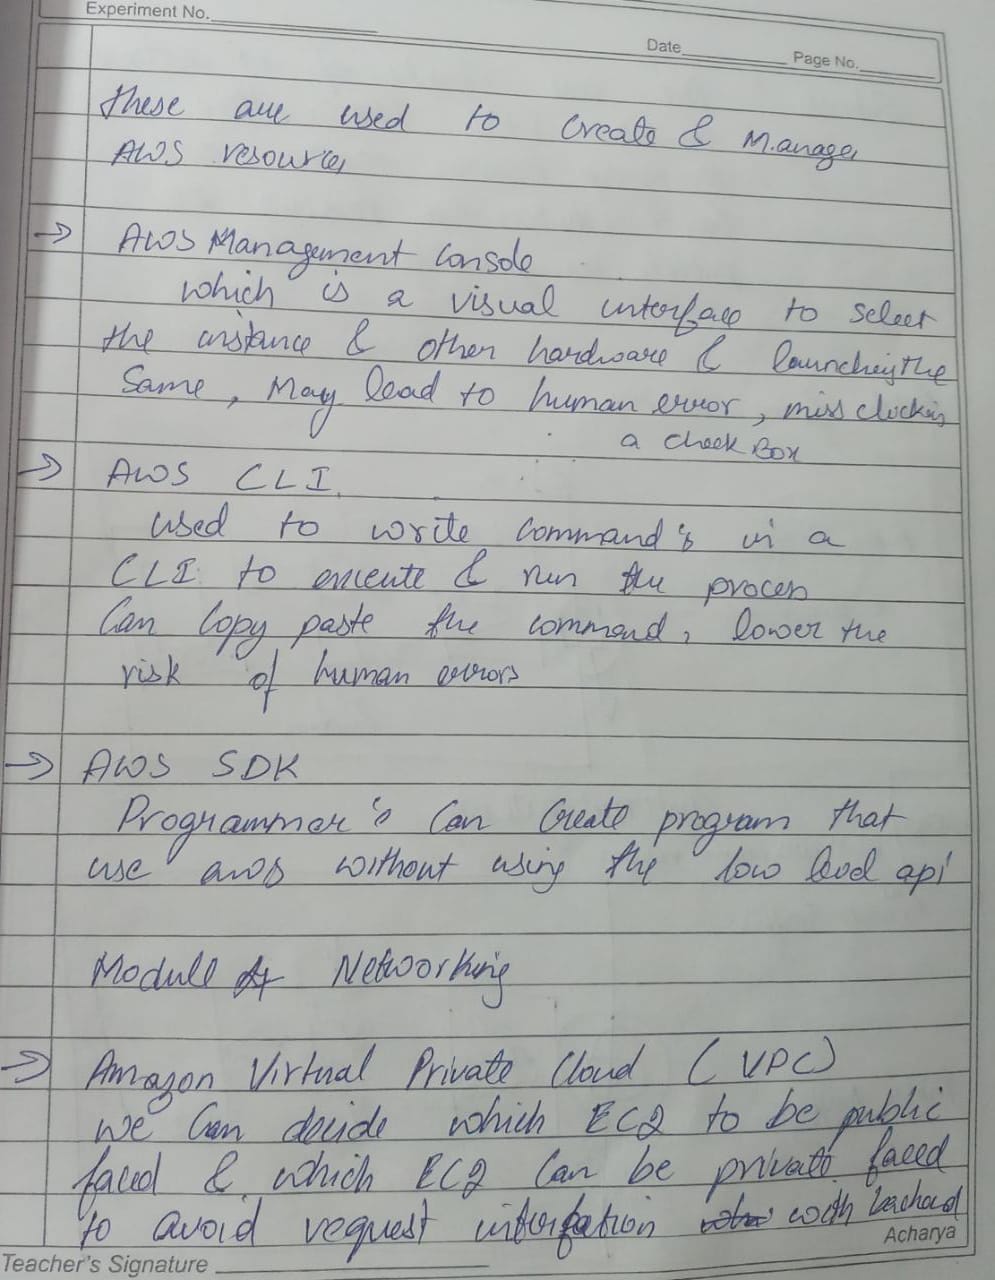 Experiment No.
Date
Page No.
these are used to Create & Manage
AWS resources
→ AWS Management Console
which is a visual interface to select
the instance & other hardware & launching the
Same, May lead to human error, miss clicking
a check Box
→ AWS CLI
used to write Command's in a
CLI to execute & run the process
Can Copy paste the command, lower the
risk of human errors
→ AWS SDK
Programmer's Can Create program that
use aws without using the low level api
Module 4 Networking
→ Amazon Virtual Private Cloud (VPC)
we Can decide which EC2 to be public
faced & which EC2 Can be private faced
to avoid request with
Acharya
Teacher's Signature